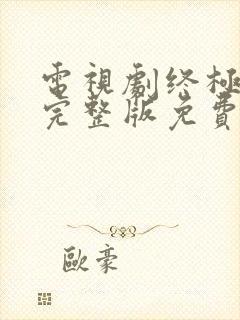 電視劇终極
完整版免費
歐豪